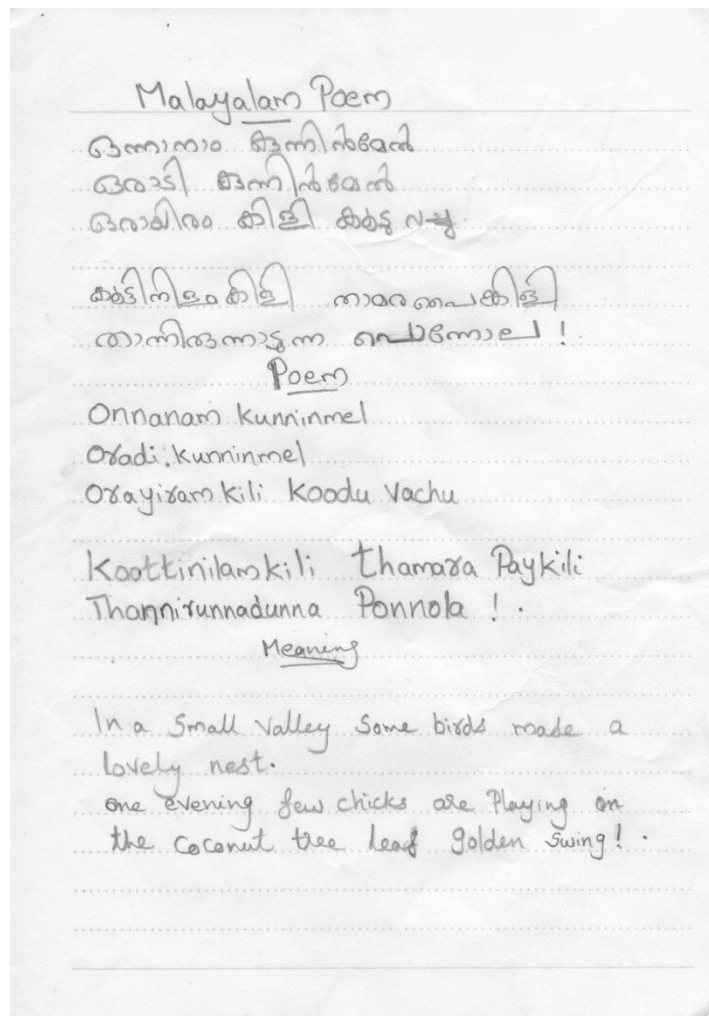 Malayalam Poem
ഒന്നാനാം കുന്നിൻമേൽ
ഒരാടി കുന്നിൻമേൽ
ഒരായിരം കിളി കൂടു വച്ചു.
കൂട്ടിനിളംകിളി താമരപൈകിളി
താന്നിരുന്നാടുന്ന പൊന്നോല !
Poem
Onnanam kunninmel
Oradi kunninmel
Orayiram kili Koodu Vachu
Koottinilamkili Thamara Paykili
Thannirunnadunna Ponnola ! .
Meaning
In a Small Valley Some birds made a
lovely nest.
one evening few chicks are Playing on
the Coconut tree leaf golden swing! .